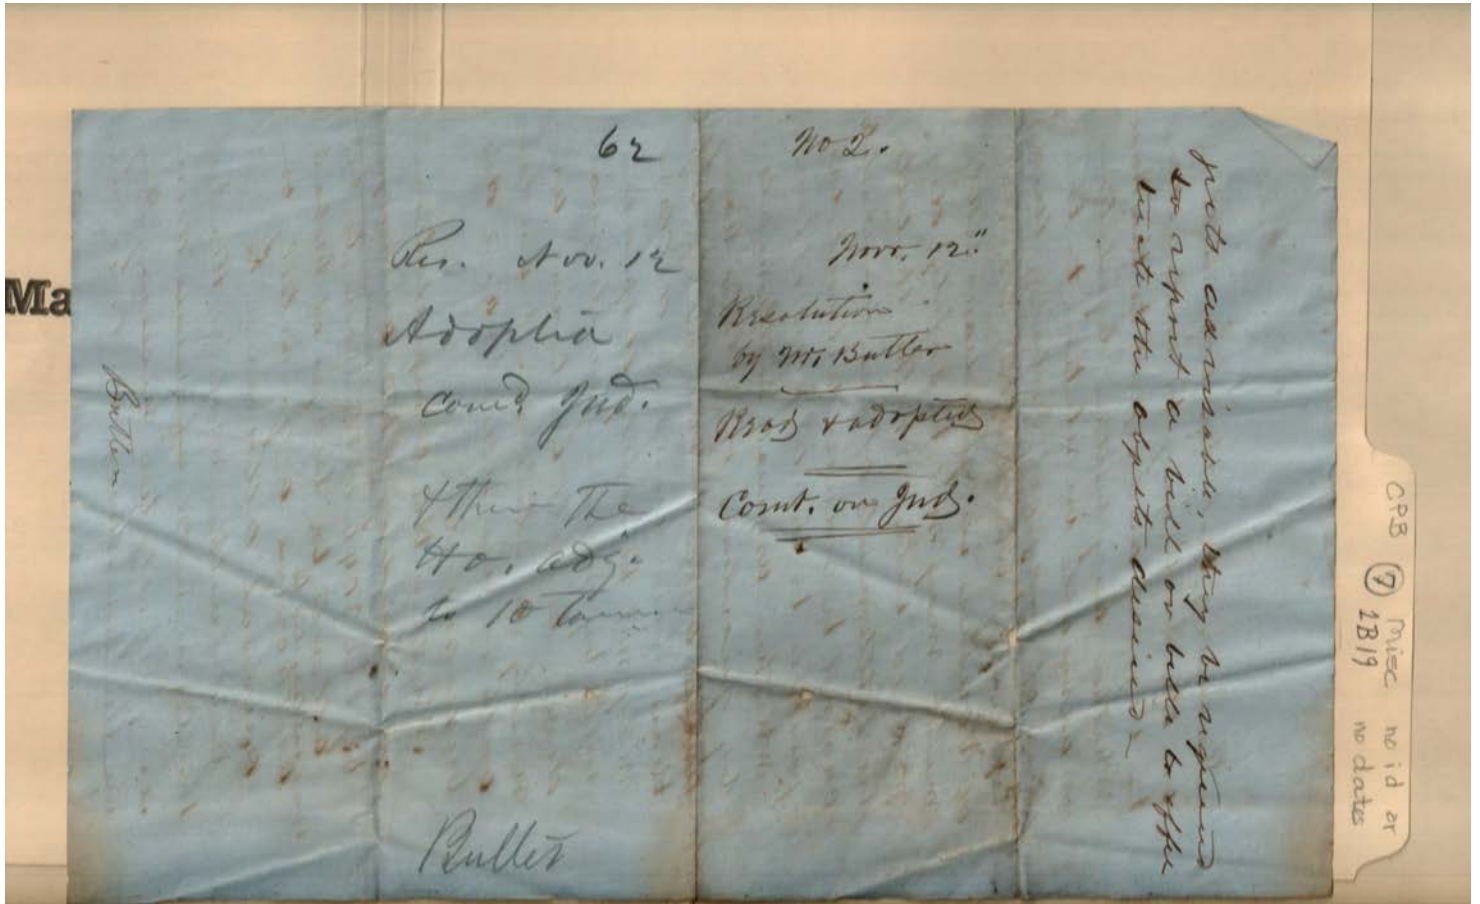 62
Res. Nov. 12
Adopted
Come. Jud.
The
Ho. adj.
to 10
Butler
No 2.
Novr. 12"
Resolution
by Mr. Butler
Read & adopted
Comt. on Jud.
jects advisable, they be required
to report a bill or bills to effec
tuate the objects desired
Butler
Ma
CPB 7 Misc no id or
1B19 no dates